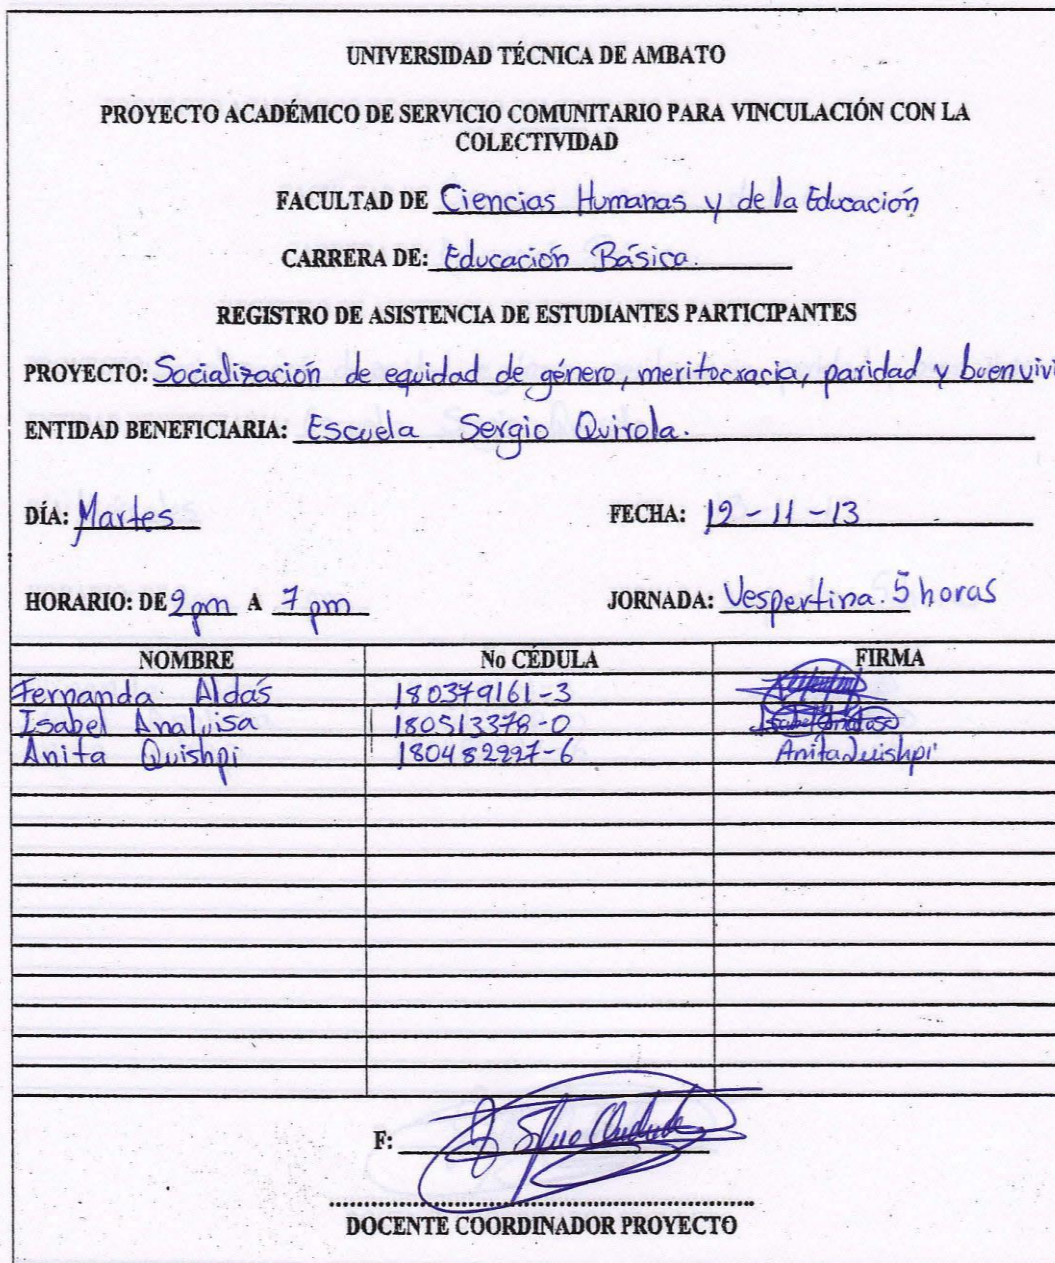 UNIVERSIDAD TÉCNICA DE AMBATO
PROYECTO ACADÉMICO DE SERVICIO COMUNITARIO PARA VINCULACIÓN CON LA
COLECTIVIDAD
FACULTAD DE Ciencias Humanas y de la Educación
CARRERA DE: Educación Básica.
REGISTRO DE ASISTENCIA DE ESTUDIANTES PARTICIPANTES
PROYECTO: Socialización de equidad de género, meritocracia, paridad y buen vivi
ENTIDAD BENEFICIARIA: Escuela Sergio Quirola.
DÍA: Martes FECHA: 12-11-13
HORARIO: DE 2 pm A 7 pm JORNADA: Vespertina. 5 horas
NOMBRE No CÉDULA FIRMA
Fernanda Aldás 180379161-3
Isabel Analuisa 180513378-0
Anita Quishpi 180482227-6 Anita Quishpi
F:
DOCENTE COORDINADOR PROYECTO